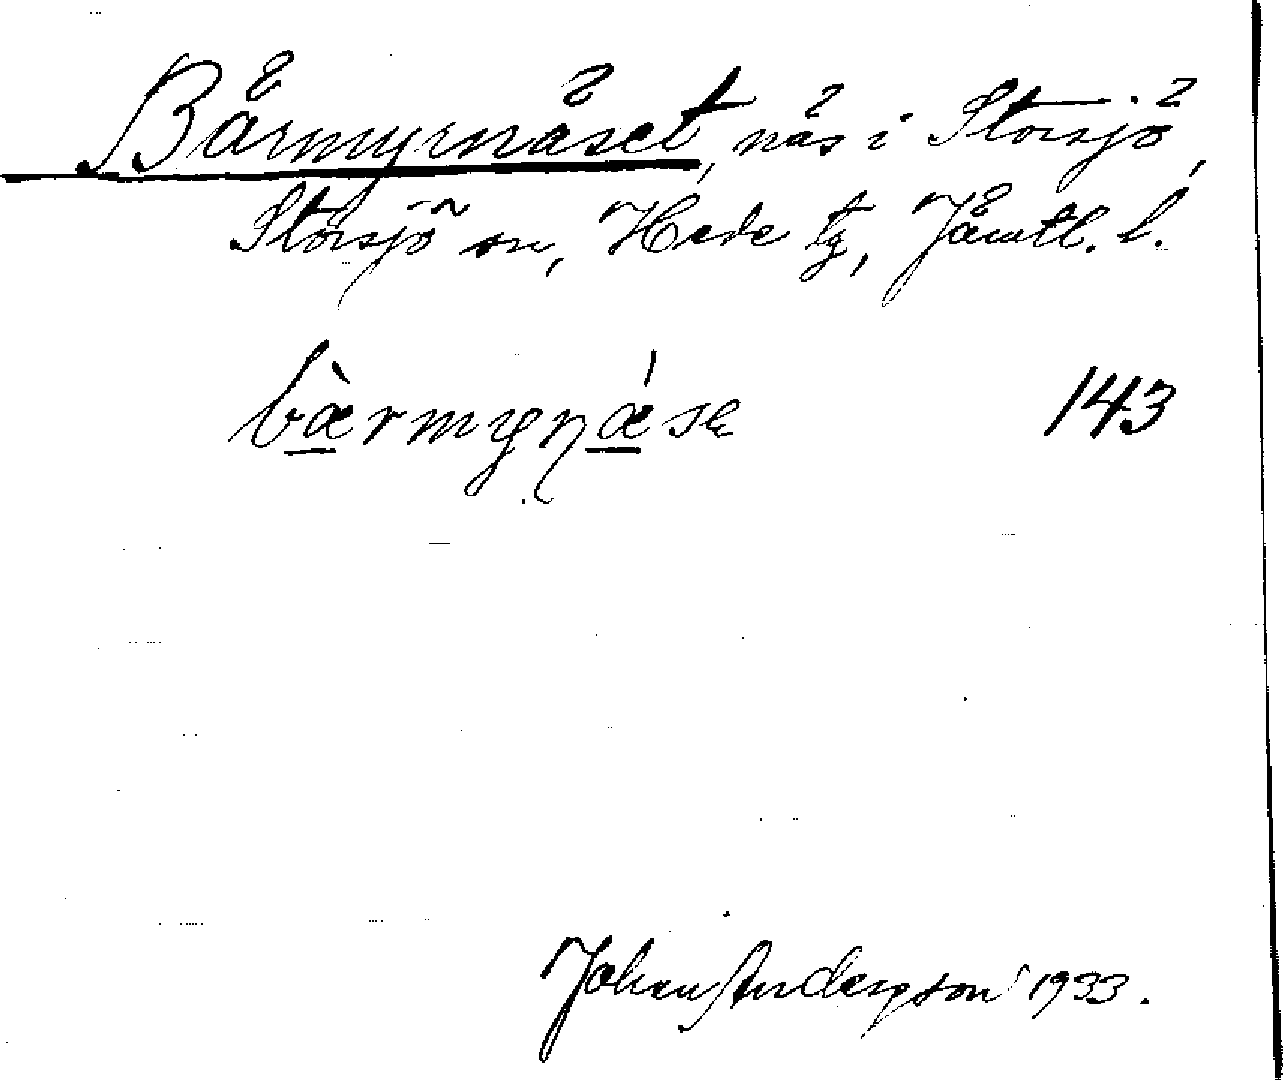 Bärmyrnäset, näs i Storsjö,
Storsjö sn, Hede tg, Jämtl. l.
bæ̀rmyɳǽsɛ 143
Johan Anderson 1933.